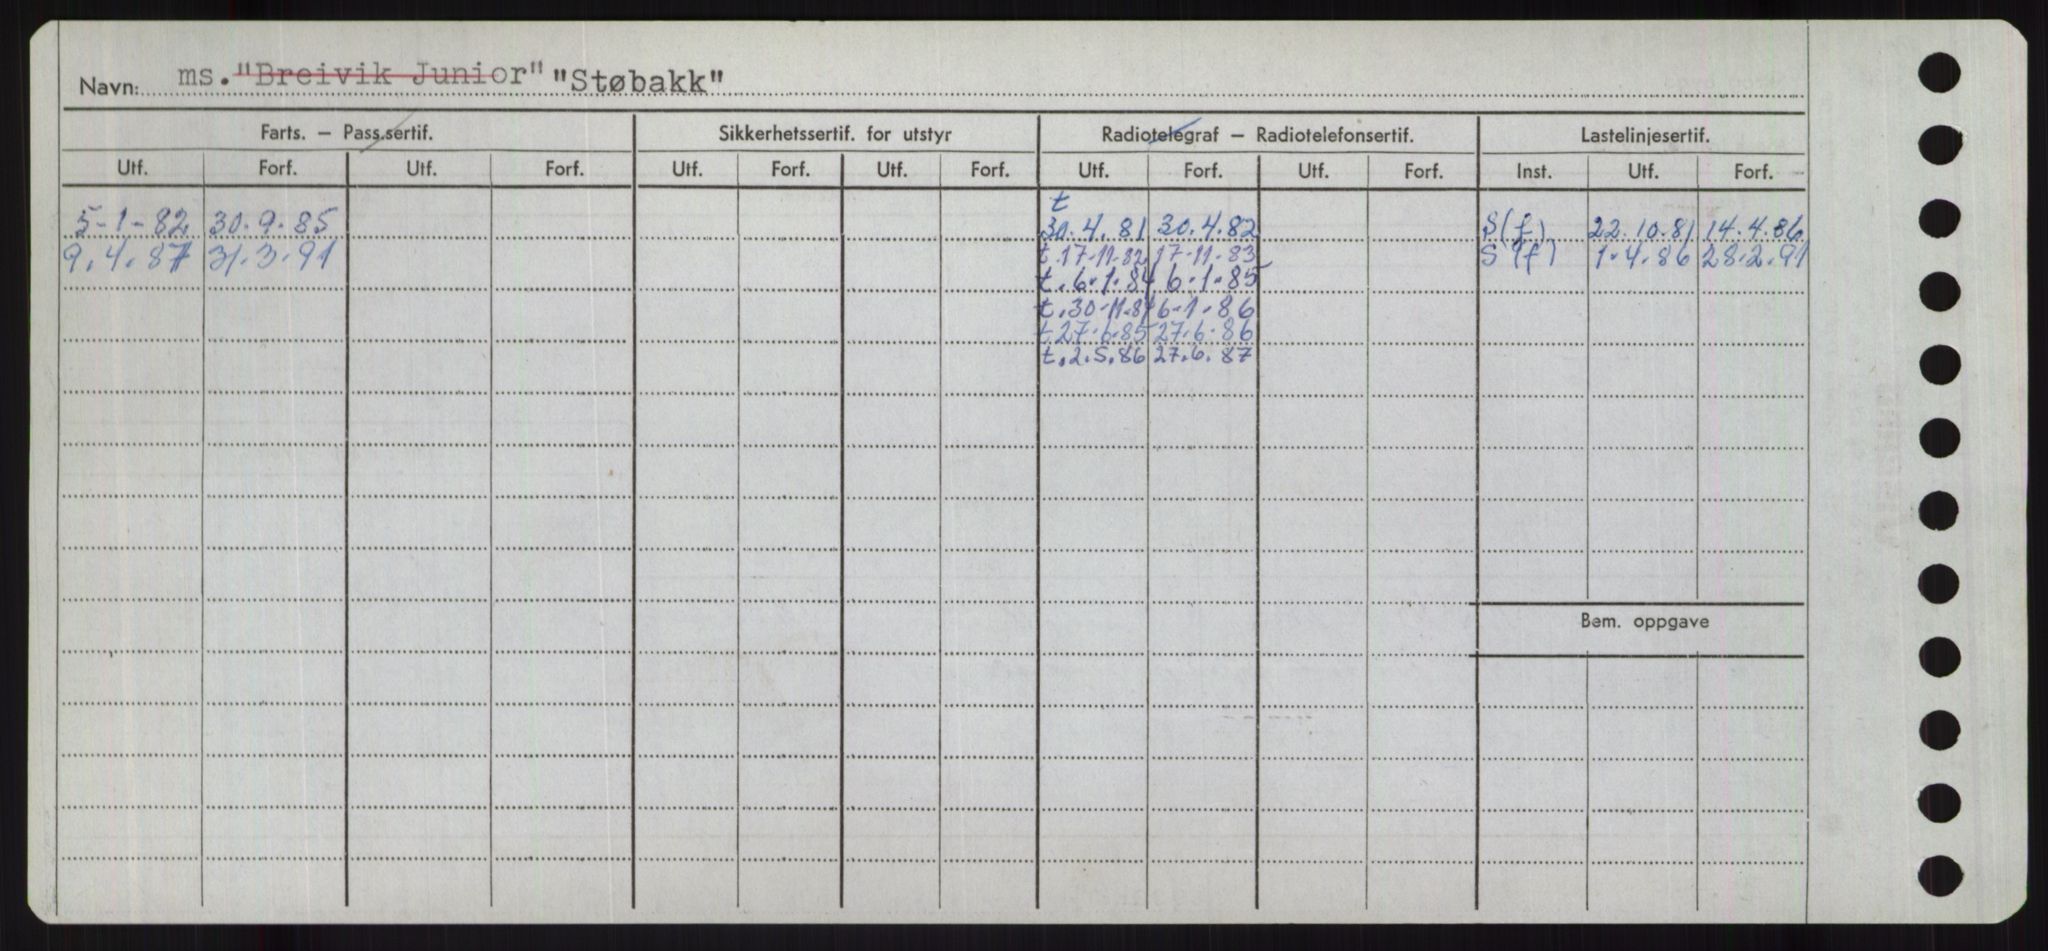 Navn: ms. "Breivik Junior" "Støbakk"
Farts. – Pass.sertif. Sikkerhetssertif. for utstyr Radiotelegraf – Radiotelefonsertif. Lastelinjesertif.
Utf. Forf. Utf. Forf. Utf. Forf. Utf. Forf. Utf. Forf. Utf. Forf. Inst. Utf. Forf.
t
5-1-82 30.9.85 30.4.81 30.4.82 S(f) 22.10.81 14.4.86
9.4.87 31.3.91 t.17-11.82 17-11.83 S(f) 1.4.86 28.2.91
t.6.1.84 6.1.85
t.30-11.84 6-1.86
t 27.6.85 27.6.86
t.2.5.86 27.6.87
Bem. oppgave